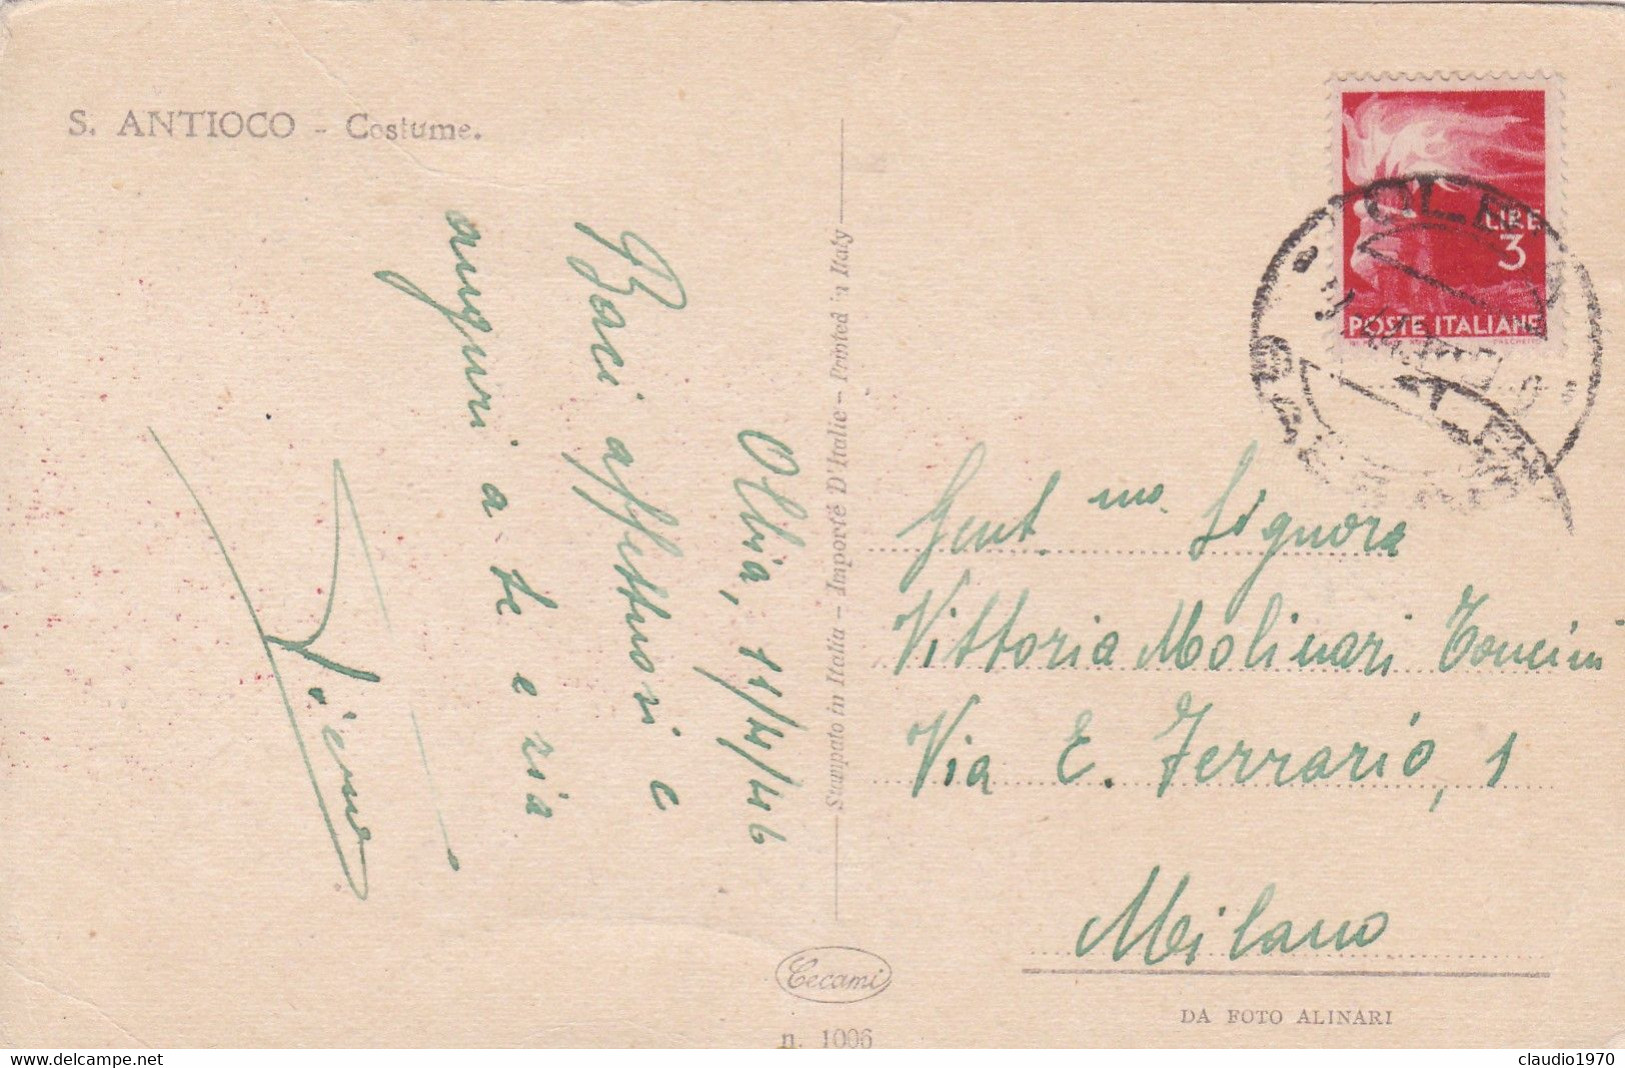 S. ANTIOCO - Costume.
Olbia, 11/4/46
Baci affettuosi e
auguri a te e zia
Stampato in Italia - Importé D'Italie - Printed in Italy
LIRE
3
POSTE ITALIANE
Gent.ma Signora
Vittoria Molinari
Via E. Ferrario, 1
Milano
Cecami
n. 1006
DA FOTO ALINARI
claudio1970